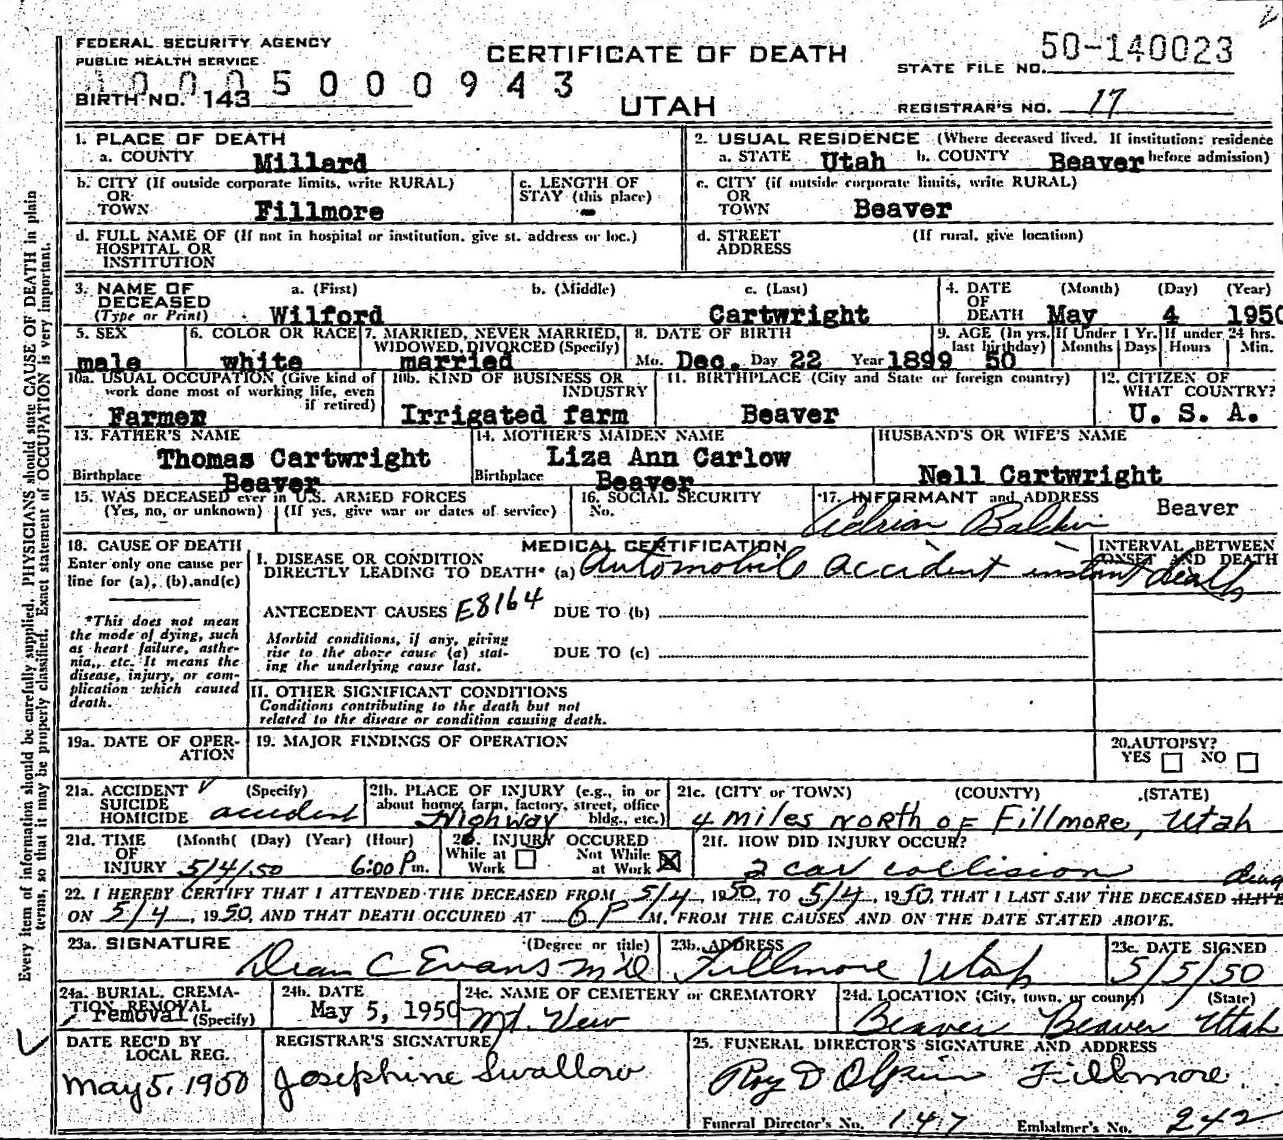 FEDERAL SECURITY AGENCY
PUBLIC HEALTH SERVICE
CERTIFICATE OF DEATH
STATE FILE NO. 50-140023
10005000943
BIRTH NO. 143
UTAH
REGISTRAR'S NO. 17
Every item of information should be carefully supplied. PHYSICIANS should state CAUSE OF DEATH in plain
terms, so that it may be properly classified. Exact statement of OCCUPATION is very important.
1. PLACE OF DEATH
a. COUNTY Millard
2. USUAL RESIDENCE (Where deceased lived. If institution: residence
a. STATE Utah b. COUNTY Beaver before admission)
b. CITY (If outside corporate limits, write RURAL)
OR
TOWN Fillmore
c. LENGTH OF
STAY (this place)
-
c. CITY (if outside corporate limits, write RURAL)
OR
TOWN Beaver
d. FULL NAME OF (If not in hospital or institution, give st. address or loc.)
HOSPITAL OR
INSTITUTION
d. STREET (If rural, give location)
ADDRESS
3. NAME OF a. (First) b. (Middle) c. (Last)
DECEASED
(Type or Print) Wilford Cartwright
4. DATE (Month) (Day) (Year)
OF
DEATH May 4 1950
5. SEX
male
6. COLOR OR RACE
white
7. MARRIED, NEVER MARRIED,
WIDOWED, DIVORCED (Specify)
married
8. DATE OF BIRTH
Mo. Dec. Day 22 Year 1899
9. AGE (In yrs. last birthday)
50
If Under 1 Yr.
Months Days
If under 24 hrs.
Hours Min.
10a. USUAL OCCUPATION (Give kind of
work done most of working life, even
if retired)
Farmer
10b. KIND OF BUSINESS OR
INDUSTRY
Irrigated farm
11. BIRTHPLACE (City and State or foreign country)
Beaver
12. CITIZEN OF
WHAT COUNTRY?
U. S. A.
13. FATHER'S NAME
Thomas Cartwright
Birthplace Beaver
14. MOTHER'S MAIDEN NAME
Liza Ann Carlow
Birthplace Beaver
HUSBAND'S OR WIFE'S NAME
Nell Cartwright
15. WAS DECEASED ever in U.S. ARMED FORCES
(Yes, no, or unknown) (If yes, give war or dates of service)
16. SOCIAL SECURITY
No.
17. INFORMANT and ADDRESS
Adrian Baldwin Beaver
18. CAUSE OF DEATH
Enter only one cause per
line for (a), (b), and (c)
*This does not mean
the mode of dying, such
as heart failure, asthe-
nia, etc. It means the
disease, injury, or com-
plication which caused
death.
MEDICAL CERTIFICATION
I. DISEASE OR CONDITION
DIRECTLY LEADING TO DEATH* (a) Automobile accident instant death
INTERVAL BETWEEN
ONSET AND DEATH
ANTECEDENT CAUSES E8164 DUE TO (b)
Morbid conditions, if any, giving
rise to the above cause (a) stat-
ing the underlying cause last.
DUE TO (c)
II. OTHER SIGNIFICANT CONDITIONS
Conditions contributing to the death but not
related to the disease or condition causing death.
19a. DATE OF OPER-
ATION
19. MAJOR FINDINGS OF OPERATION
20. AUTOPSY?
YES NO
21a. ACCIDENT (Specify)
SUICIDE
HOMICIDE accident
21b. PLACE OF INJURY (e.g., in or
about home, farm, factory, street, office
bldg., etc.)
Highway
21c. (CITY or TOWN) (COUNTY) (STATE)
4 miles north of Fillmore, Utah
21d. TIME (Month) (Day) (Year) (Hour)
OF
INJURY 5/4/50 6:00 P m.
INJURY OCCURED
While at Work
Not While at Work
21f. HOW DID INJURY OCCUR?
2 car collision
22. I HEREBY CERTIFY THAT I ATTENDED THE DECEASED FROM 5/4, 1950, TO 5/4, 1950, THAT I LAST SAW THE DECEASED ALIVE
ON 5/4, 1950, AND THAT DEATH OCCURED AT 6 P M. FROM THE CAUSES AND ON THE DATE STATED ABOVE.
23a. SIGNATURE (Degree or title)
Dean C Evans MD
23b. ADDRESS
Fillmore Utah
23c. DATE SIGNED
5/5/50
24a. BURIAL, CREMA-
TION REMOVAL
removal (Specify)
24b. DATE
May 5, 1950
24c. NAME OF CEMETERY or CREMATORY
Mt. View
24d. LOCATION (City, town, or county) (State)
Beaver Beaver Utah
DATE REC'D BY
LOCAL REG.
May 5, 1950
REGISTRAR'S SIGNATURE
Josephine Swallow
25. FUNERAL DIRECTOR'S SIGNATURE AND ADDRESS
Roy D Olpin Fillmore.
Funeral Director's No. 147 Embalmer's No. 242